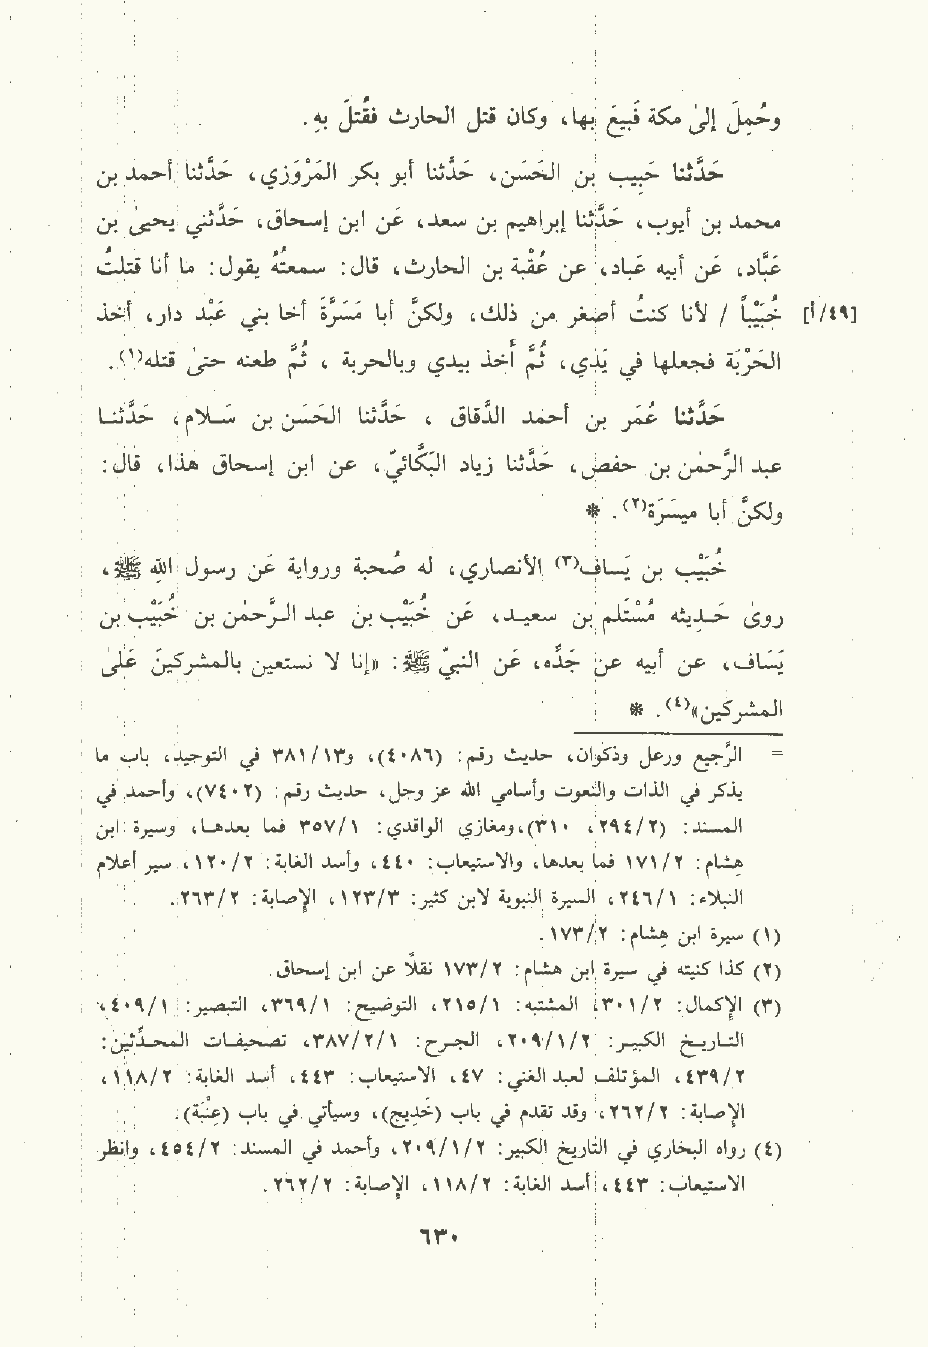 وحُمِلَ إلىٰ مكة فَبِيعَ بها، وكان قتل الحارث فقُتِلَ بِهِ.
حَدَّثنا حَبِيب بن الحَسَن، حَدَّثنا أبو بكر المَرْوَزي، حَدَّثنا أحمد بن
محمد بن أيوب، حَدَّثنا إبراهيم بن سعد، عَن ابن إسحاق، حَدَّثني يحيىٰ بن
عَبَّاد، عَن أبيه عَباد، عن عُقْبة بن الحارث، قال: سمعتُهُ يقول: ما أنا قتلتُ
[٤٩/أ] خُبَيْباً / لأنا كنتُ أصغر من ذلك، ولكنَّ أبا مَسَرَّةَ أخا بني عَبْد دار، أخذ
الحَرْبَة فجعلها في يَدَي، ثُمَّ أَخذ بيدي وبالحربة ، ثُمَّ طعنه حتىٰ قتله(١).
حَدَّثنا عُمَر بن أحمد الدَّقاق ، حَدَّثنا الحَسَن بن سَـلام، حَدَّثنـا
عبد الرَّحمٰن بن حفص، حَدَّثنا زياد البَكَّائيّ، عن ابن إسحاق هذا، قال:
ولكنَّ أبا ميسَرَة(٢). *
خُبَيْب بن يَساف(٣) الأنصاري، له صُحبة ورواية عَن رسول اللهِ ﷺ،
روىٰ حَـدِيثه مُسْتَلِم بن سعيـد، عَن خُبَيْب بن عبد الرَّحمٰن بن خُبَيْب بن
يَسَاف، عن أبيه عن جَدِّه، عَن النبيّ ﷺ: «إنا لا نستعين بالمشركينَ عَلىٰ
المشركين»(٤). *
= الرَّجيع ورعل وذكوان، حديث رقم: (٤٠٨٦)، و٣٨١/١٣ في التوحيد، باب ما
يذكر في الذات والنعوت وأسامي الله عز وجل، حديث رقم: (٧٤٠٢)، وأحمد في
المسند: (٢٩٤/٢، ٣١٠)،ومغازي الواقدي: ٣٥٧/١ فما بعدهـا، وسيرة ابن
هِشام: ١٧١/٢ فما بعدها، والاستيعاب: ٤٤٠، وأسد الغابة: ١٢٠/٢، سير أعلام
النبلاء: ٢٤٦/١، السيرة النبوية لابن كثير: ١٢٣/٣، الإصابة: ٢٦٣/٢.
(١) سيرة ابن هِشام: ١٧٣/٢.
(٢) كذا كنيته في سيرة ابن هشام: ١٧٣/٢ نقلاً عن ابن إسحاق.
(٣) الإكمال: ٣٠١/٢، المشتبه: ٢١٥/١، التوضيح: ٣٦٩/١، التبصير: ٤٠٩/١،
التـاريـخ الكبيـر: ٢٠٩/١/٢، الجـرح: ٣٨٧/٢/١، تصحيفـات المحـدِّثين:
٤٣٩/٢، المؤتلف لعبد الغني: ٤٧، الاستيعاب: ٤٤٣، أسد الغابة: ١١٨/٢،
الإصابة: ٢٦٢/٢، وقد تقدم في باب (خَدِيج)، وسيأتي في باب (عِنَبة).
(٤) رواه البخاري في التاريخ الكبير: ٢٠٩/١/٢، وأحمد في المسند: ٤٥٤/٢، وانظر
الاستيعاب: ٤٤٣، أسد الغابة: ١١٨/٢، الإصابة: ٢٦٢/٢.
٦٣٠